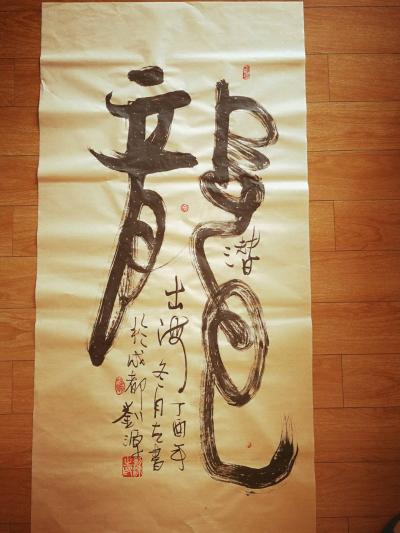 龍
潜
出海
丁酉年
冬月左書
於成都
源